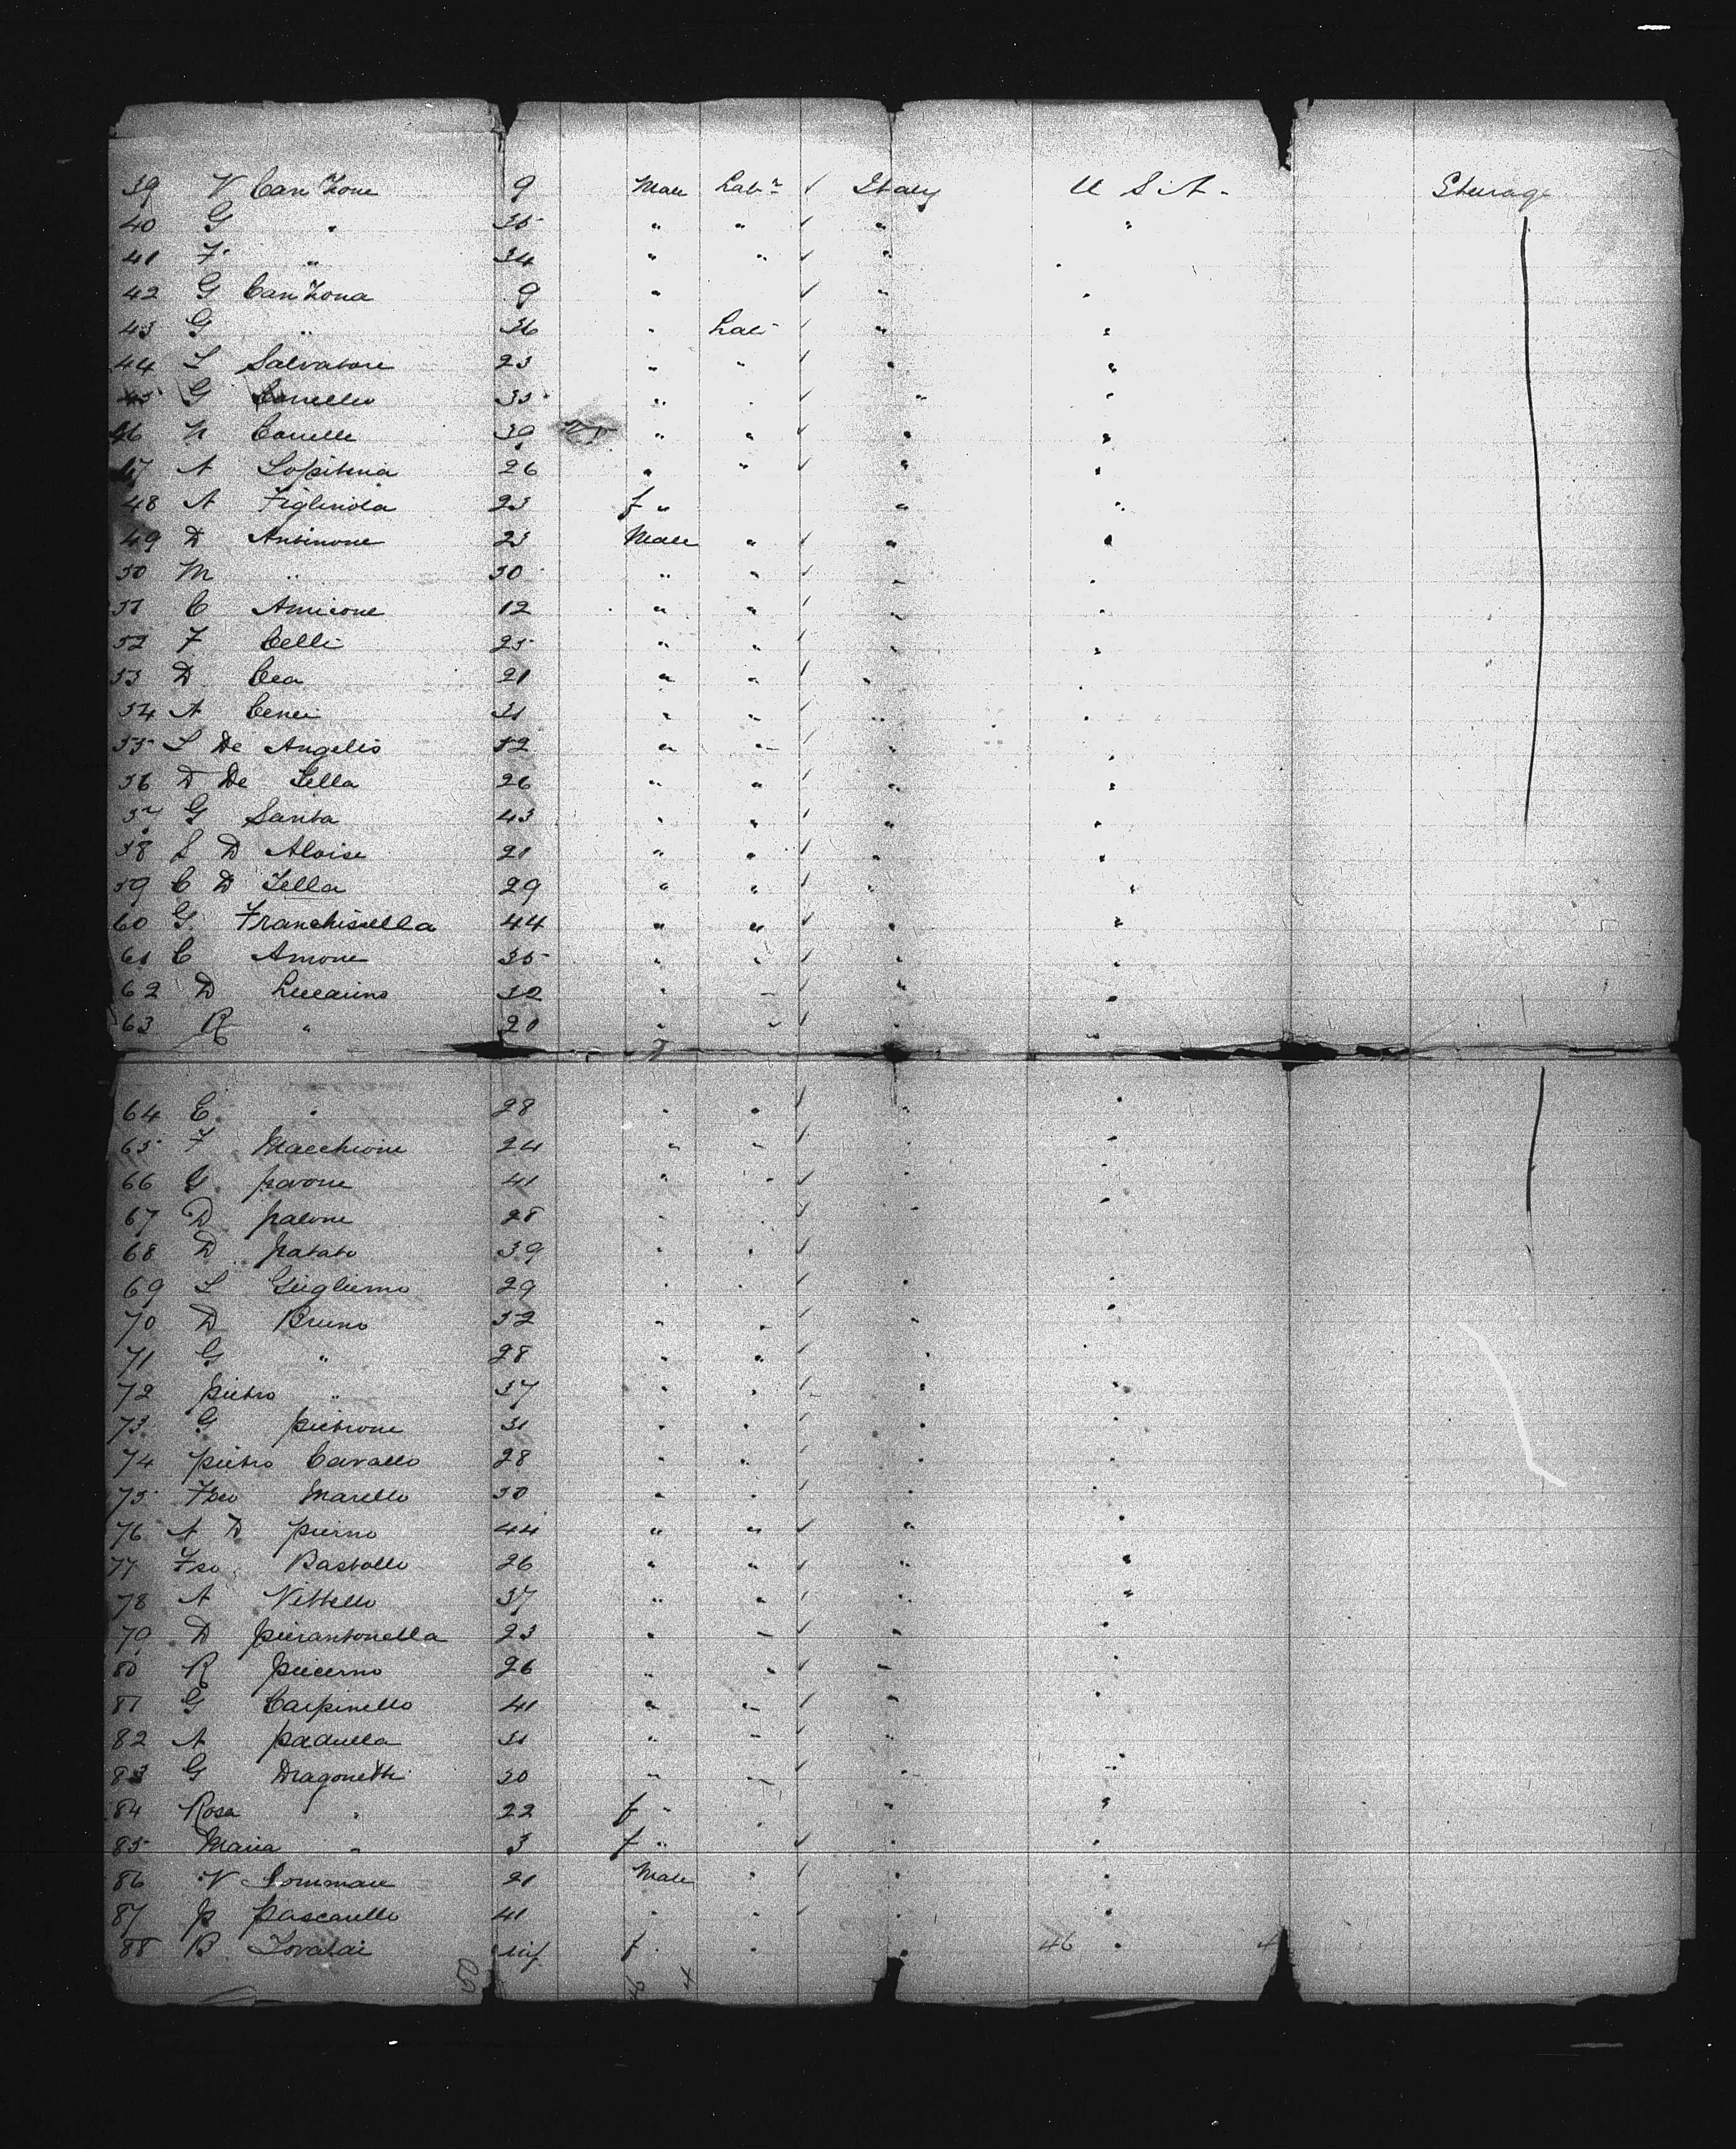 39 V CanZone 9 Male Labr ✓ Italy U S A - Steerage
40 G " 35 " " ✓ " "
41 F " 34 " " ✓ " "
42 G CanZona 9 " ✓ " "
43 G " 36 " Lab ✓ " "
44 L Salvatore 23 " " ✓ " "
45 G 35 " " ✓ " "
46 N Conelle 39 " " ✓ " "
47 A 26 " " ✓ " "
48 A 23 f " " "
49 D Antinone 23 Male " ✓ " "
50 M " 50 " " ✓ " "
51 C Amicone 12 " " ✓ " "
52 F Celli 25 " " ✓ " "
53 D Cea 21 " " ✓ " "
54 A Cenci 31 " " ✓ " "
55 L De Angelis 52 " " ✓ " "
56 D De Lella 26 " " ✓ " "
57 G Santa 43 " " ✓ " "
58 S D Aloise 21 " " ✓ " "
59 C D Lella 29 " " ✓ " "
60 G Franchisella 44 " " ✓ " "
61 C Amone 35 " " ✓ " "
62 D 32 " " ✓ " "
63 R " 20 " " ✓ " "
64 C " 28 " " ✓ " "
65 F Macchione 24 " " ✓ " "
66 G pavone 41 " " ✓ " "
67 D palone 28 " " ✓ " "
68 D patato 39 " " ✓
69 L Guglielmo 29 " " ✓ " "
70 D Bruno 52 " " ✓ " "
71 G " 28 " " ✓ " "
72 pietro " 37 " " ✓ " "
73 G pietrone 31 " " ✓ " "
74 pietro Cavallo 28 " " ✓ " "
75 Marello 50 " " ✓ " "
76 A D pierno 44 " " ✓ " "
77 Fso Bastollo 26 " " ✓ " "
78 A Vittello 37 " " ✓ " "
79 D pierantonella 23 " " ✓ " "
80 R piccerno 26 " " ✓ " "
81 G Carpinello 41 " " ✓ " "
82 A padulla 31 " " ✓ " "
83 G Dragonetti 30 " " ✓ " "
84 Rosa " 22 f " " " "
85 Maria " 3 f " ✓ " "
86 V 21 Male " ✓ " "
87 p pascarello 41 " " ✓ " "
88 B inf f " " " 46 " 4
50 46 4